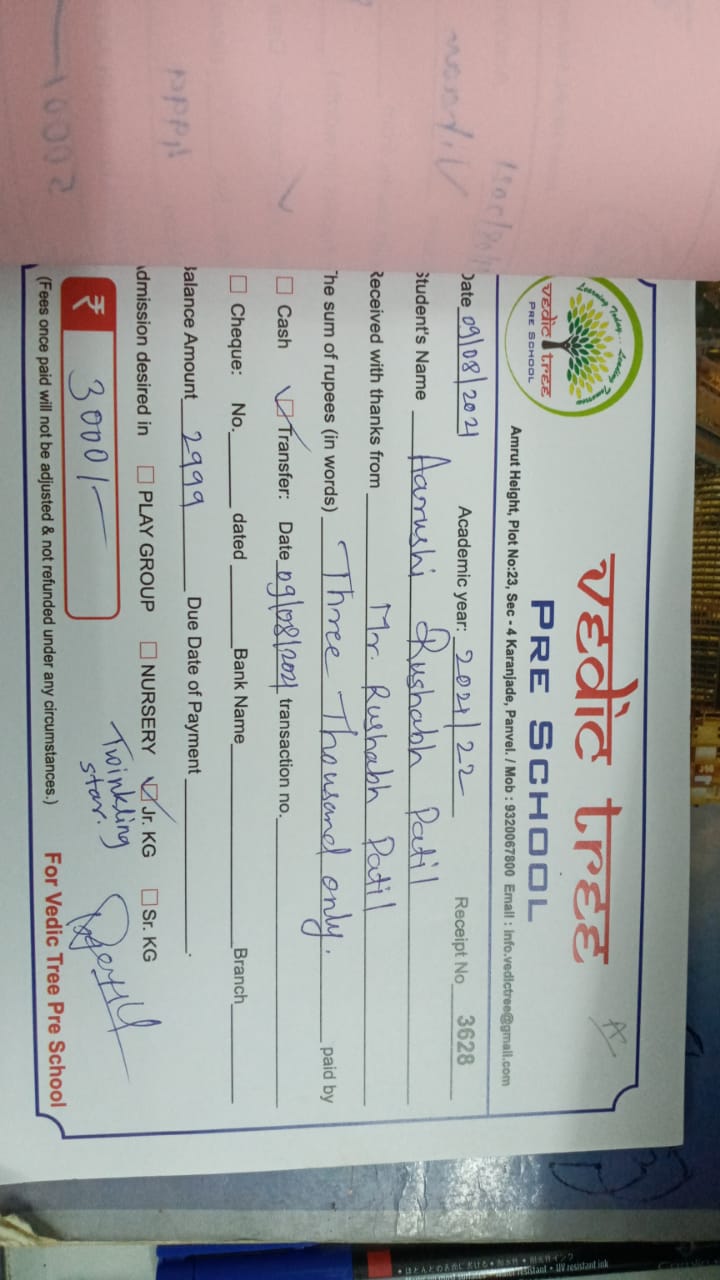 vedic tree
PRE SCHOOL
Learning Today... Leading Tomorrow
vedic tree
PRE SCHOOL
Amrut Height, Plot No:23, Sec - 4 Karanjade, Panvel. / Mob : 9320067800 Email : info.vedictree@gmail.com
Date 09/08/2021 Academic year: 2021/22 Receipt No 3628
Student's Name Aarushi Rushabh Patil
Received with thanks from Mr. Rushabh Patil
The sum of rupees (in words) Three Thousand only. paid by
Cash Transfer: Date 09/08/2021 transaction no.
Cheque: No. dated Bank Name Branch
Balance Amount 2999 Due Date of Payment
Admission desired in PLAY GROUP NURSERY Jr. KG Sr. KG
Twinkling
star.
₹ 3000/-
(Fees once paid will not be adjusted & not refunded under any circumstances.) For Vedic Tree Pre School
UV resistant ink